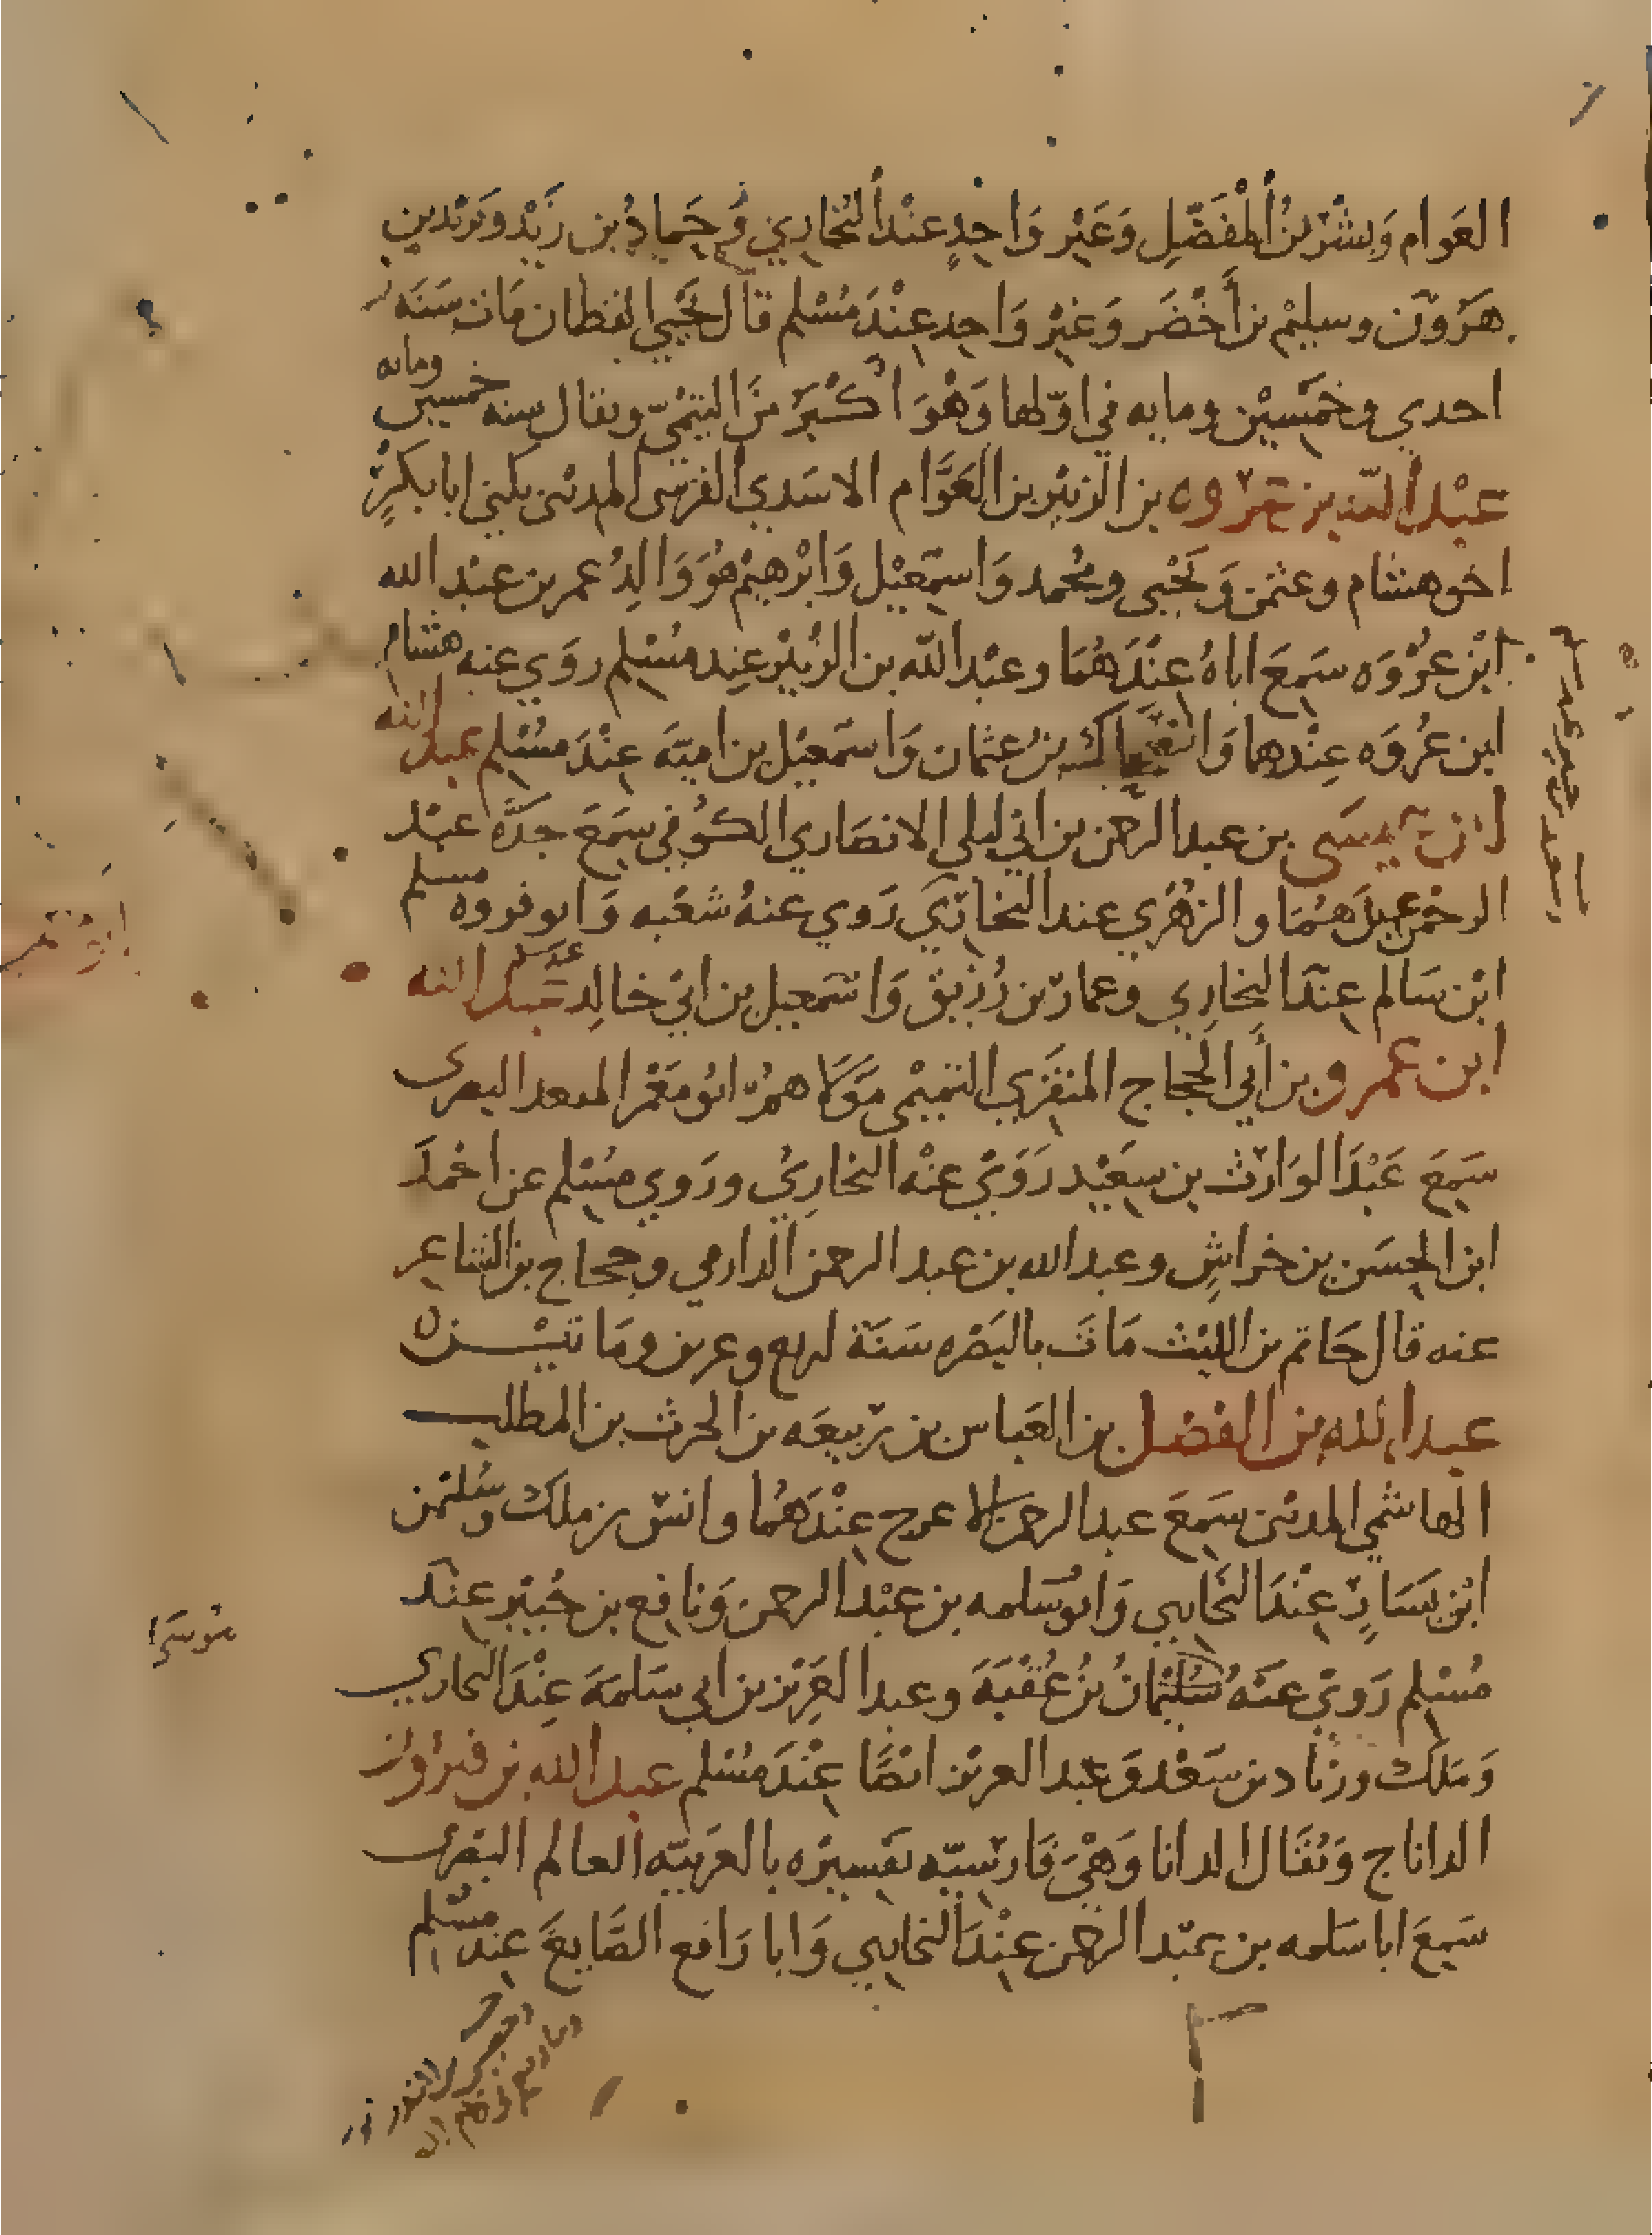 العَوام وَبِشْرُ بْنُ الْمُفَضَّلِ وَغَيْر وَاحِدٍ عِنْدَ الْبُخارِي وَحَمادُ بن زَيْد وَيَزيد بن
هَرُوْن وسليمْ بن أَخْضَر وَغَيْر وَاحِد عِنْدَ مُسْلم قال يَحْيي القطان مَات سَنَه
احدي وخَمْسِيْن ومايه في اوّلها وَهْوَ اكْبَرَ مِنَ التيْمِيّ ويقال سنه خمسين ومايه
عَبْد اللّه بن عُرْوه بن الزبَيْر بن العَوَّام الاسَدي القرشي المدني يكني ابا بكرٍ
اخو هشام وعثمن وَيَحْيى ومُحمد وَاسمَعِيْل وَابْرهيْم هُوَ وَالِدُ عمر بن عبْد الله
ابْن عُرْوَه سَمِعَ اباهُ عِنْدَهُمَا وعبْد اللّه بن الزُبَيْر عِند مُسْلِم روَي عنه هشام
ابن عُروَه عِنْدهما وَالضحاك بن عثمان وَاسمَعيْل بن اميَّه عِنْدَ مسْلم عبد الله
ابن عيسَى بن عبد الرحمن بن ابي ليلي الانصَاري الكوُفي سَمِعَ جدَّه عبْد
الرحمن عِندَهُمَا والزهْرِي عند البخارِي رَوي عنهُ شعْبه وَابو فروه مسلم
ابْن سَالم عِندَ البخارِي وعمارُ بن رُزيق وَاسمَعيل بن ابيْ خالِد عند مسلم عَبد الله
ابن عمرو بن أَبي الحَجاج المنقَرِي التميْمي مَوْلاهمُ ابُو مَعْمَر المقعد البصرى
سَمِعَ عَبْدَ الوَارث بن سعيْد رَوَيْ عنْه البخارِيُ ورَوي مسُلم عن احْمَدَ
ابن الحسَن بن خراشٍ وعبد الله بن عبد الرحمن الدارمي وحجاج بن الشاعر
عنه قال حَاتم بن الليْث مَات بالبَصْره سَنَة اربع وعشرين ومَائتيْن
عبد الله بن الفضل بن العَباس بن رَبيعَه بن الحرث بن المطلب
الهاشمي المدني سَمِعَ عبد الرحمن الاعرج عِنْدَهُمَا وانس بن ملك وسُليْمن
ابْن يَسَارٍ عِنْدَ البُخَاري وَابوُ سَلمه بن عَبْد الرحمن وَنَافِع بن جُبَيْر عِنْدَ
مُسْلم رَوَيْ عَنهُ سُليْمانُ بْنُ عُقْبَهَ وعبد العَزِيْز بن ابي سَلمَهَ عِنْدَ البخاري
وَمَلك وزيَاد بن سَعْد وَعبد العزيز ايضًا عِنْدَ مسُلم عبد الله بن فيرُوز
الداناج وَيُقَال الدانا وَهْيَ فَارسيّه تفسيرُه بالعَرَبيّه العالم البصْرى
سَمِعَ ابا سَلمه بن عَبْد الرحمن عِنْدَ البُخاري وَابا رَافع الصَّايِغَ عِند مسُلم
موسَى